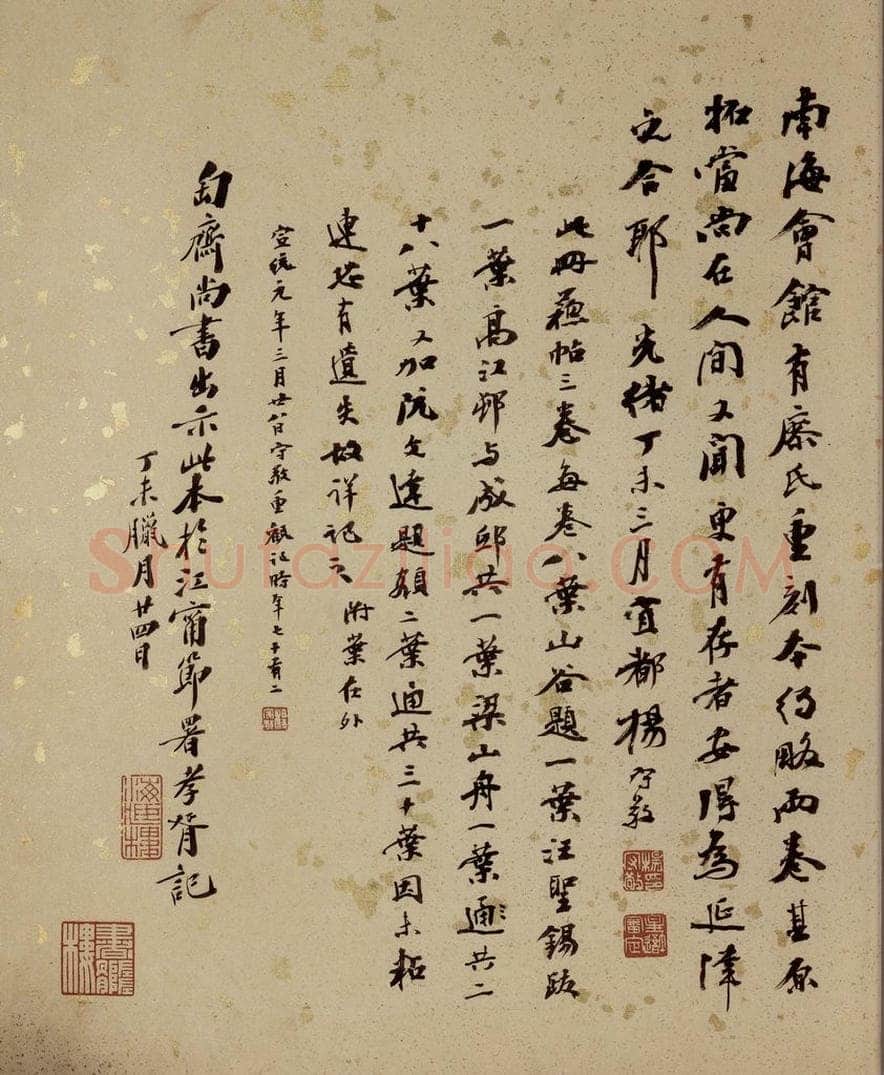 南海會館有廖氏重刻本約略兩卷其原
拓當尚在人間又聞更有存者安得為延津
之合耶 光緒丁未三月宜都楊守敬
此冊蘇帖三卷每卷八葉山谷題一葉汪聖錫跋
一葉高江邨与成邸共一葉梁山舟一葉通共二
十八葉又加阮文達題額二葉通共三十葉因未粘
連恐有遺失故詳記之 附葉在外
宣統元年三月廿八日守敬重觀記時年七十有二
匋齋尚書出示此本於江甯節署孝胥記
丁未臘月廿四日
海藏樓
Shufaziliao.COM